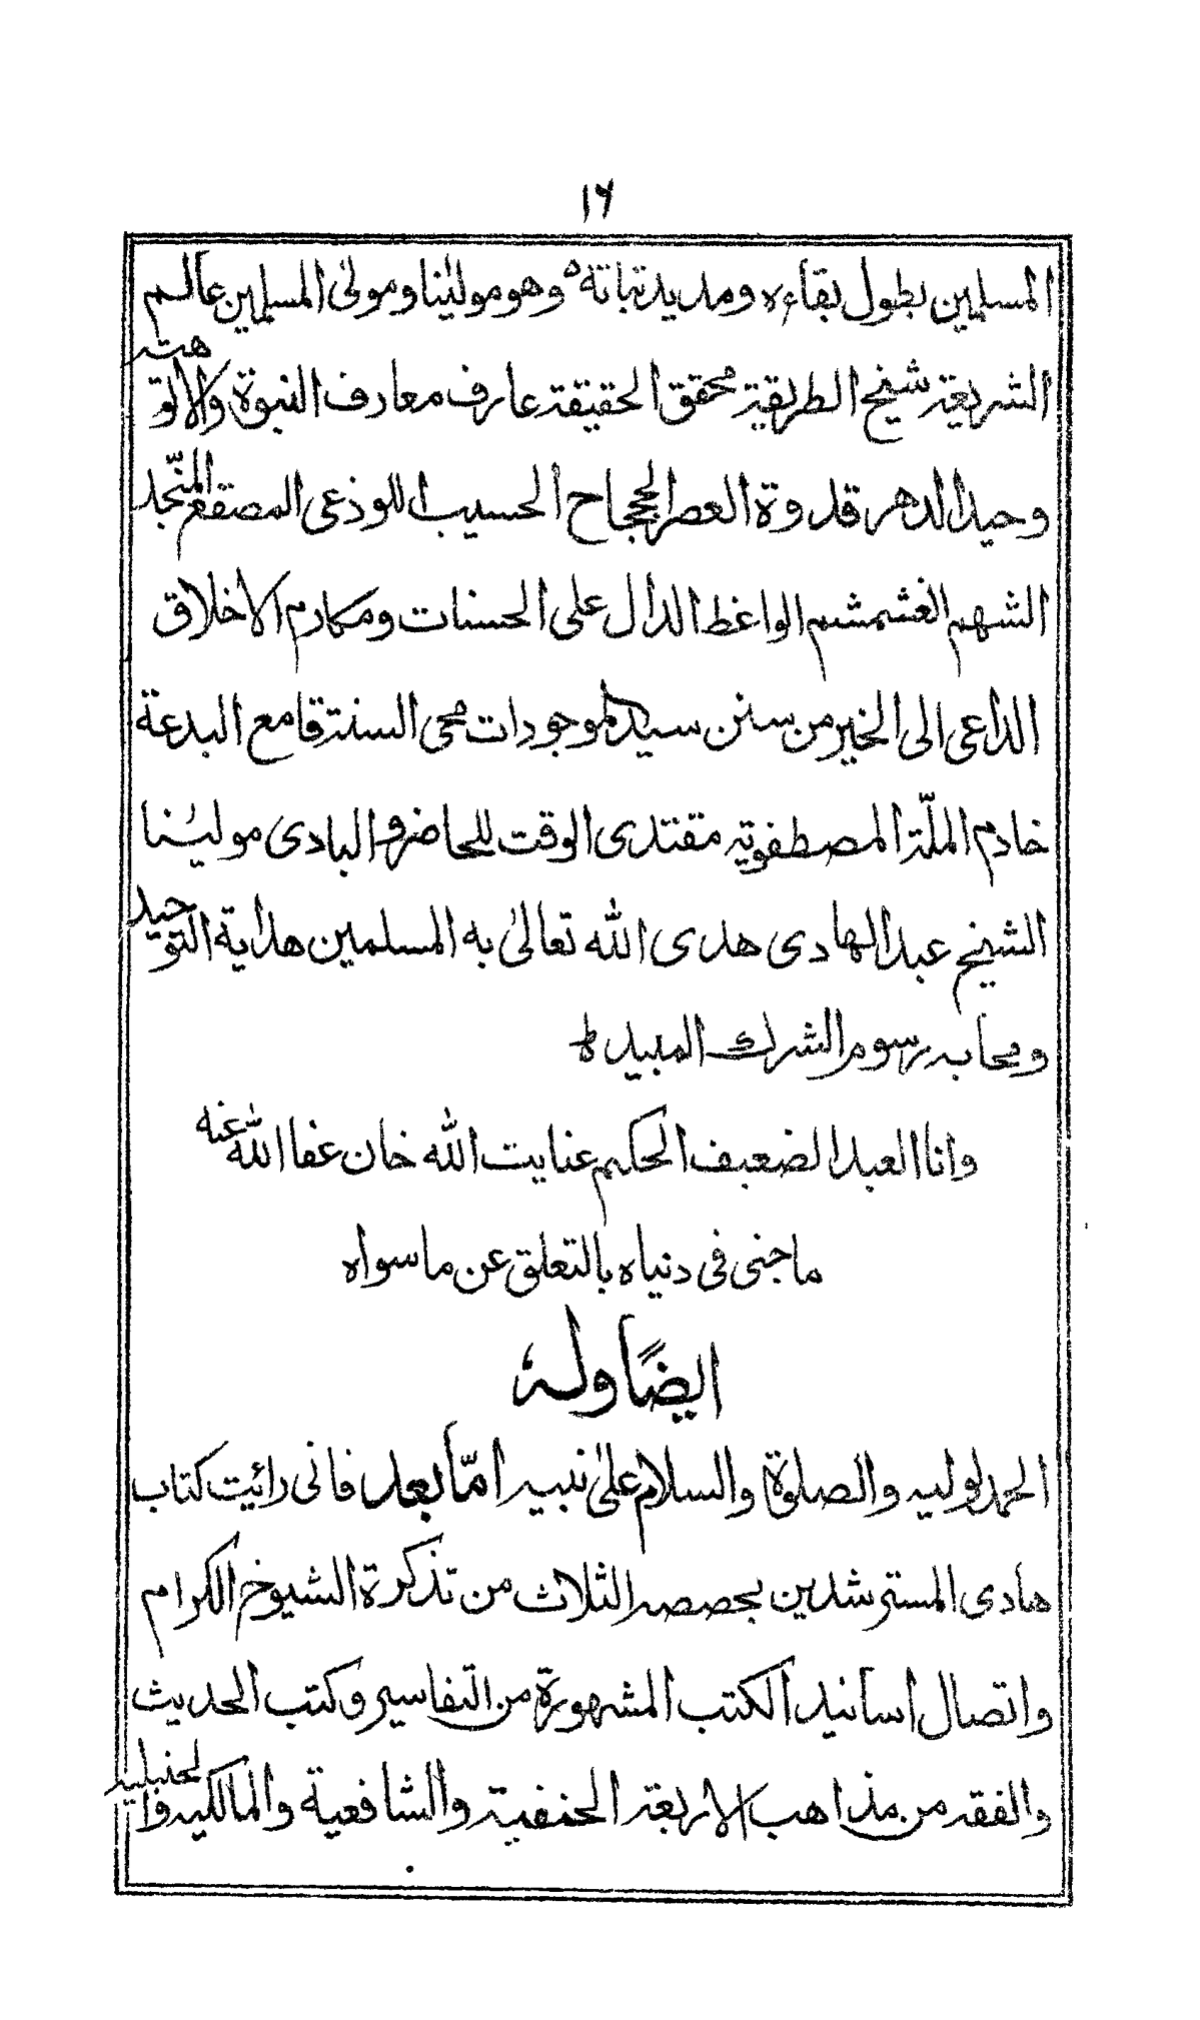 ١٦
المسلمين بطول بقاءه ومديد ثباتة وهو مولٰينا ومولى المسلمين عالم
الشريعة شيخ الطريقة محقق الحقيقة عارف معارف النبوة والالوهته
وحيد الدهر قدوة العصر الجحجاح الحسيب اللوذعى المصقع المنّجد
الشهم الغشمشم الواعظ الدال على الحسنات ومكارم الاخلاق
الداعى الى الخير من سنن سيد الموجودات محى السنة قامع البدعة
خادم الملّة المصطفوية مقتدى الوقت للحاضر والبادى مولٰينا
الشيخ عبد الهادى هدى الله تعالىٰ به المسلمين هداية التوحيد
ومحابه رسوم الشرك المبيد ط
وانا العبد الضعيف الحكيم عنايت الله خان عفا الله عنه
ما جنى فى دنياه بالتعلق عن ما سواه
ايضًا وله
الحمد لوليه والصلوة والسلام علىٰ نبيه امّا بعد فانى رائيت كتاب
هادى المسترشدين بحصصه الثلاث من تذكرة الشيوخ الكرام
واتصال اسانيد الكتب المشهورة من التفاسير وكتب الحديث
والفقه من مذاهب الاربعة الحنفية والشافعية والمالكيه والحنبليه